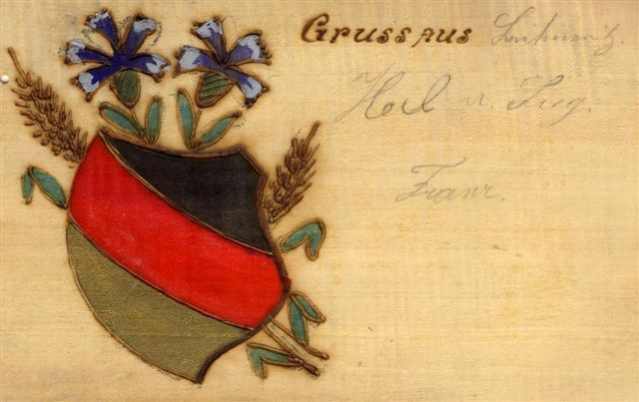 Gruss aus Leitmeritz.
Heil u. Sieg.
Franz.